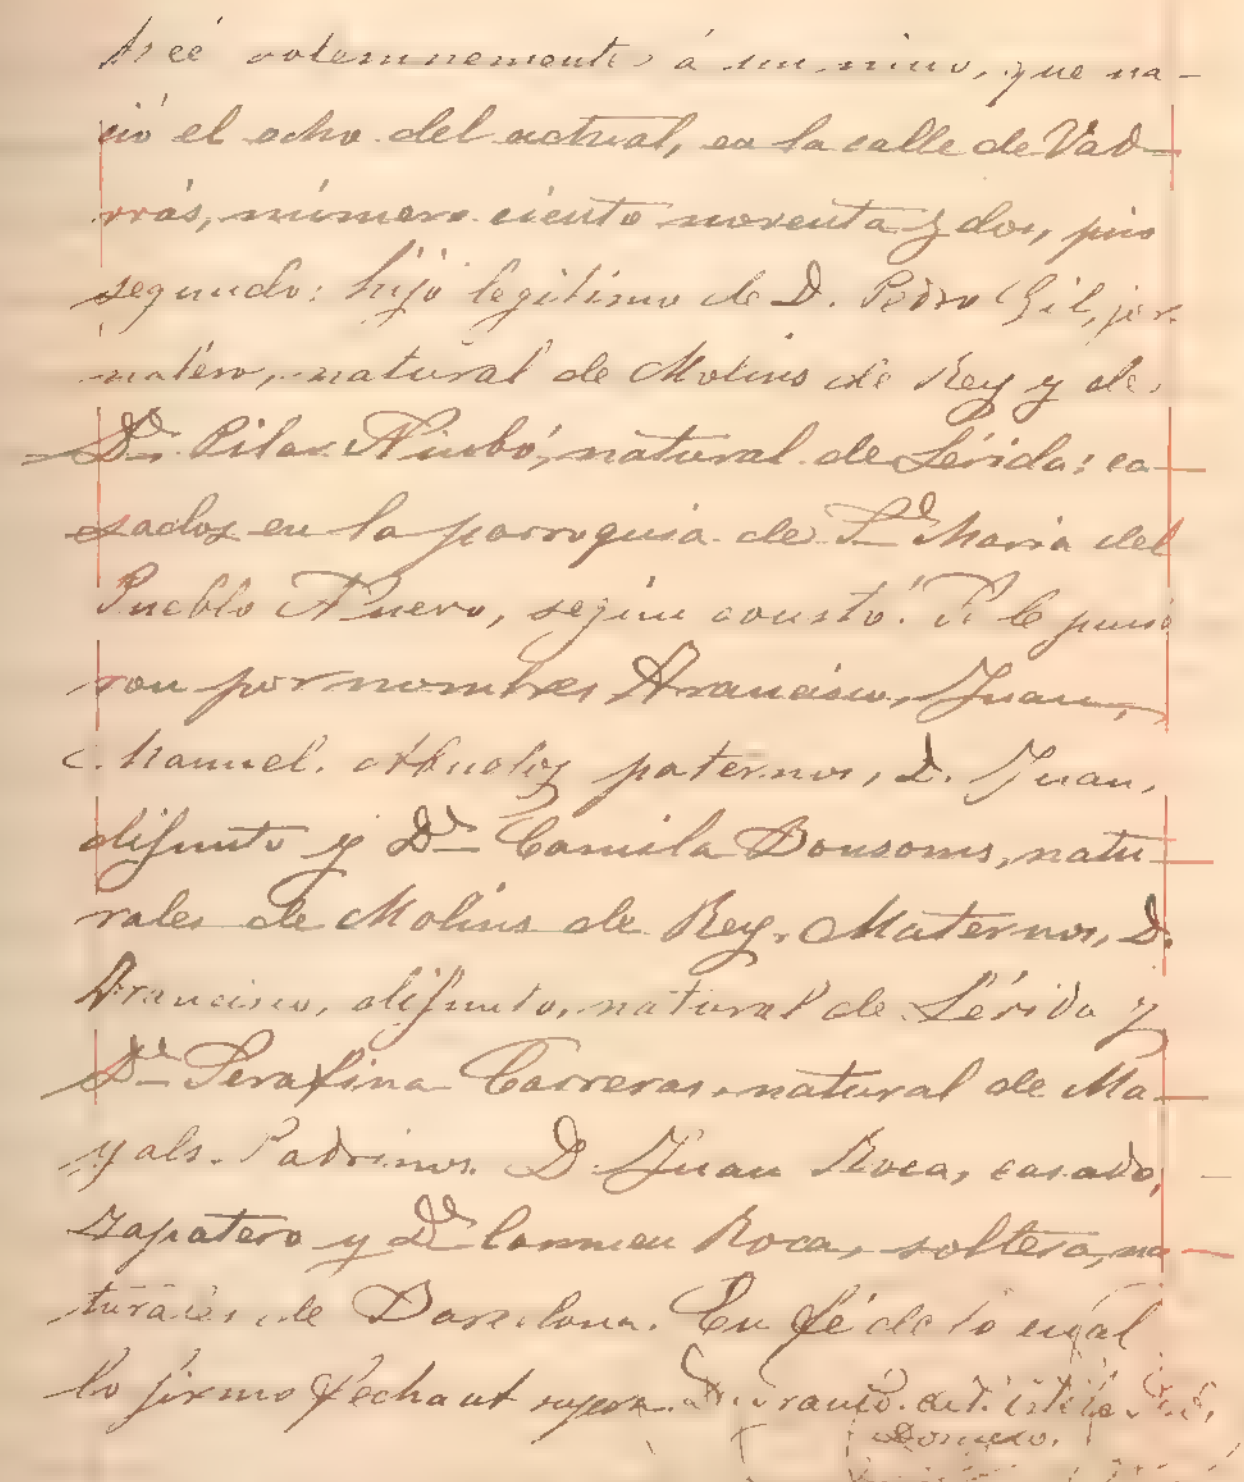 solemnemente á un niño, que na-
ció el ocho del actual, en la calle de Vad-
rrás, número ciento noventa y dos, piso
segundo: hijo legitimo de D. Pedro Gil, jor-
nalero, natural de Molins de Rey y de
Dª Pilar Nimbó, natural de Lérida: ca-
sados en la parroquia de Sª Maria del
Pueblo Nuevo, según constó. Y le pusie
ron por nombres Francisco, Juan,
Manuel. Abuelos paternos, D. Juan,
difunto y Dª Camila Bonsoms, natu-
rales de Molins de Rey. Maternos, D.
Francisco, difunto, natural de Lérida y
Dª Serafina Carreras, natural de Ma-
yals. Padrinos. D. Juan Roca, casado,
zapatero y Dª Carmen Roca, soltera, na-
turales de Barcelona. En fé de lo cual
lo firmo fecha ut supra.